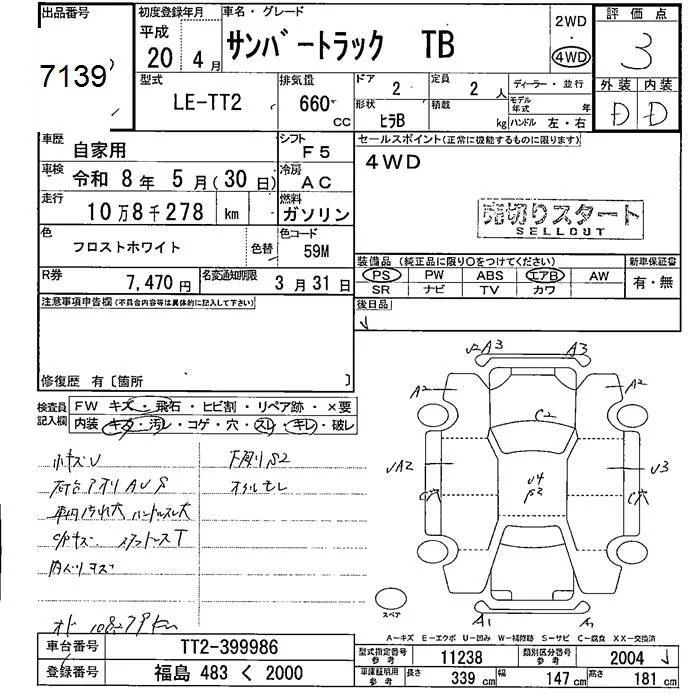 出品番号
7139
初度登録年月
平成
20 4月
車名・グレード
サンバートラック TB
2WD
4WD
評価点
3
外装 内装
D D
型式
LE-TT2
排気量
660 CC
ドア 2
形状 ヒラB
定員 2 人
積載 kg
ディーラー・並行
モデル年式 年
ハンドル 左・右
車歴 自家用
シフト F5
車検 令和 8年 5月(30日)
冷房 AC
走行 10万8千278 km
燃料 ガソリン
色 フロストホワイト
色替
色コード 59M
R券 7,470円
名変通知期限 3月31日
セールスポイント(正常に機能するものに限ります)
4WD
売切りスタート
SELLOUT
装備品(純正品に限り○をつけてください)
PS PW ABS エアB AW
SR ナビ TV カワ
新車保証書
有・無
後日品
注意事項申告欄(不具合内容等は具体的に記入して下さい)
修復歴 有〔箇所 〕
検査員記入欄
FW キズ・飛石・ヒビ割・リペア跡・×要
内装 キタ・汚レ・コゲ・穴・スレ・キレ・破レ
小キズU
下廻りS2
オイルモレ
U2 A3 A3
A2 A2
C2
UA2 U3
U4
S2
C穴 C穴
A1 A1
スペア
A−キズ E−エクボ U−凹み W−補修跡 S−サビ C−腐食 XX−交換済
車台番号 TT2-399986
登録番号 福島 483 く 2000
型式指定番号 参考 11238
類別区分番号 参考 2004
車庫証明用 参考 長さ 339 cm 幅 147 cm 高さ 181 cm